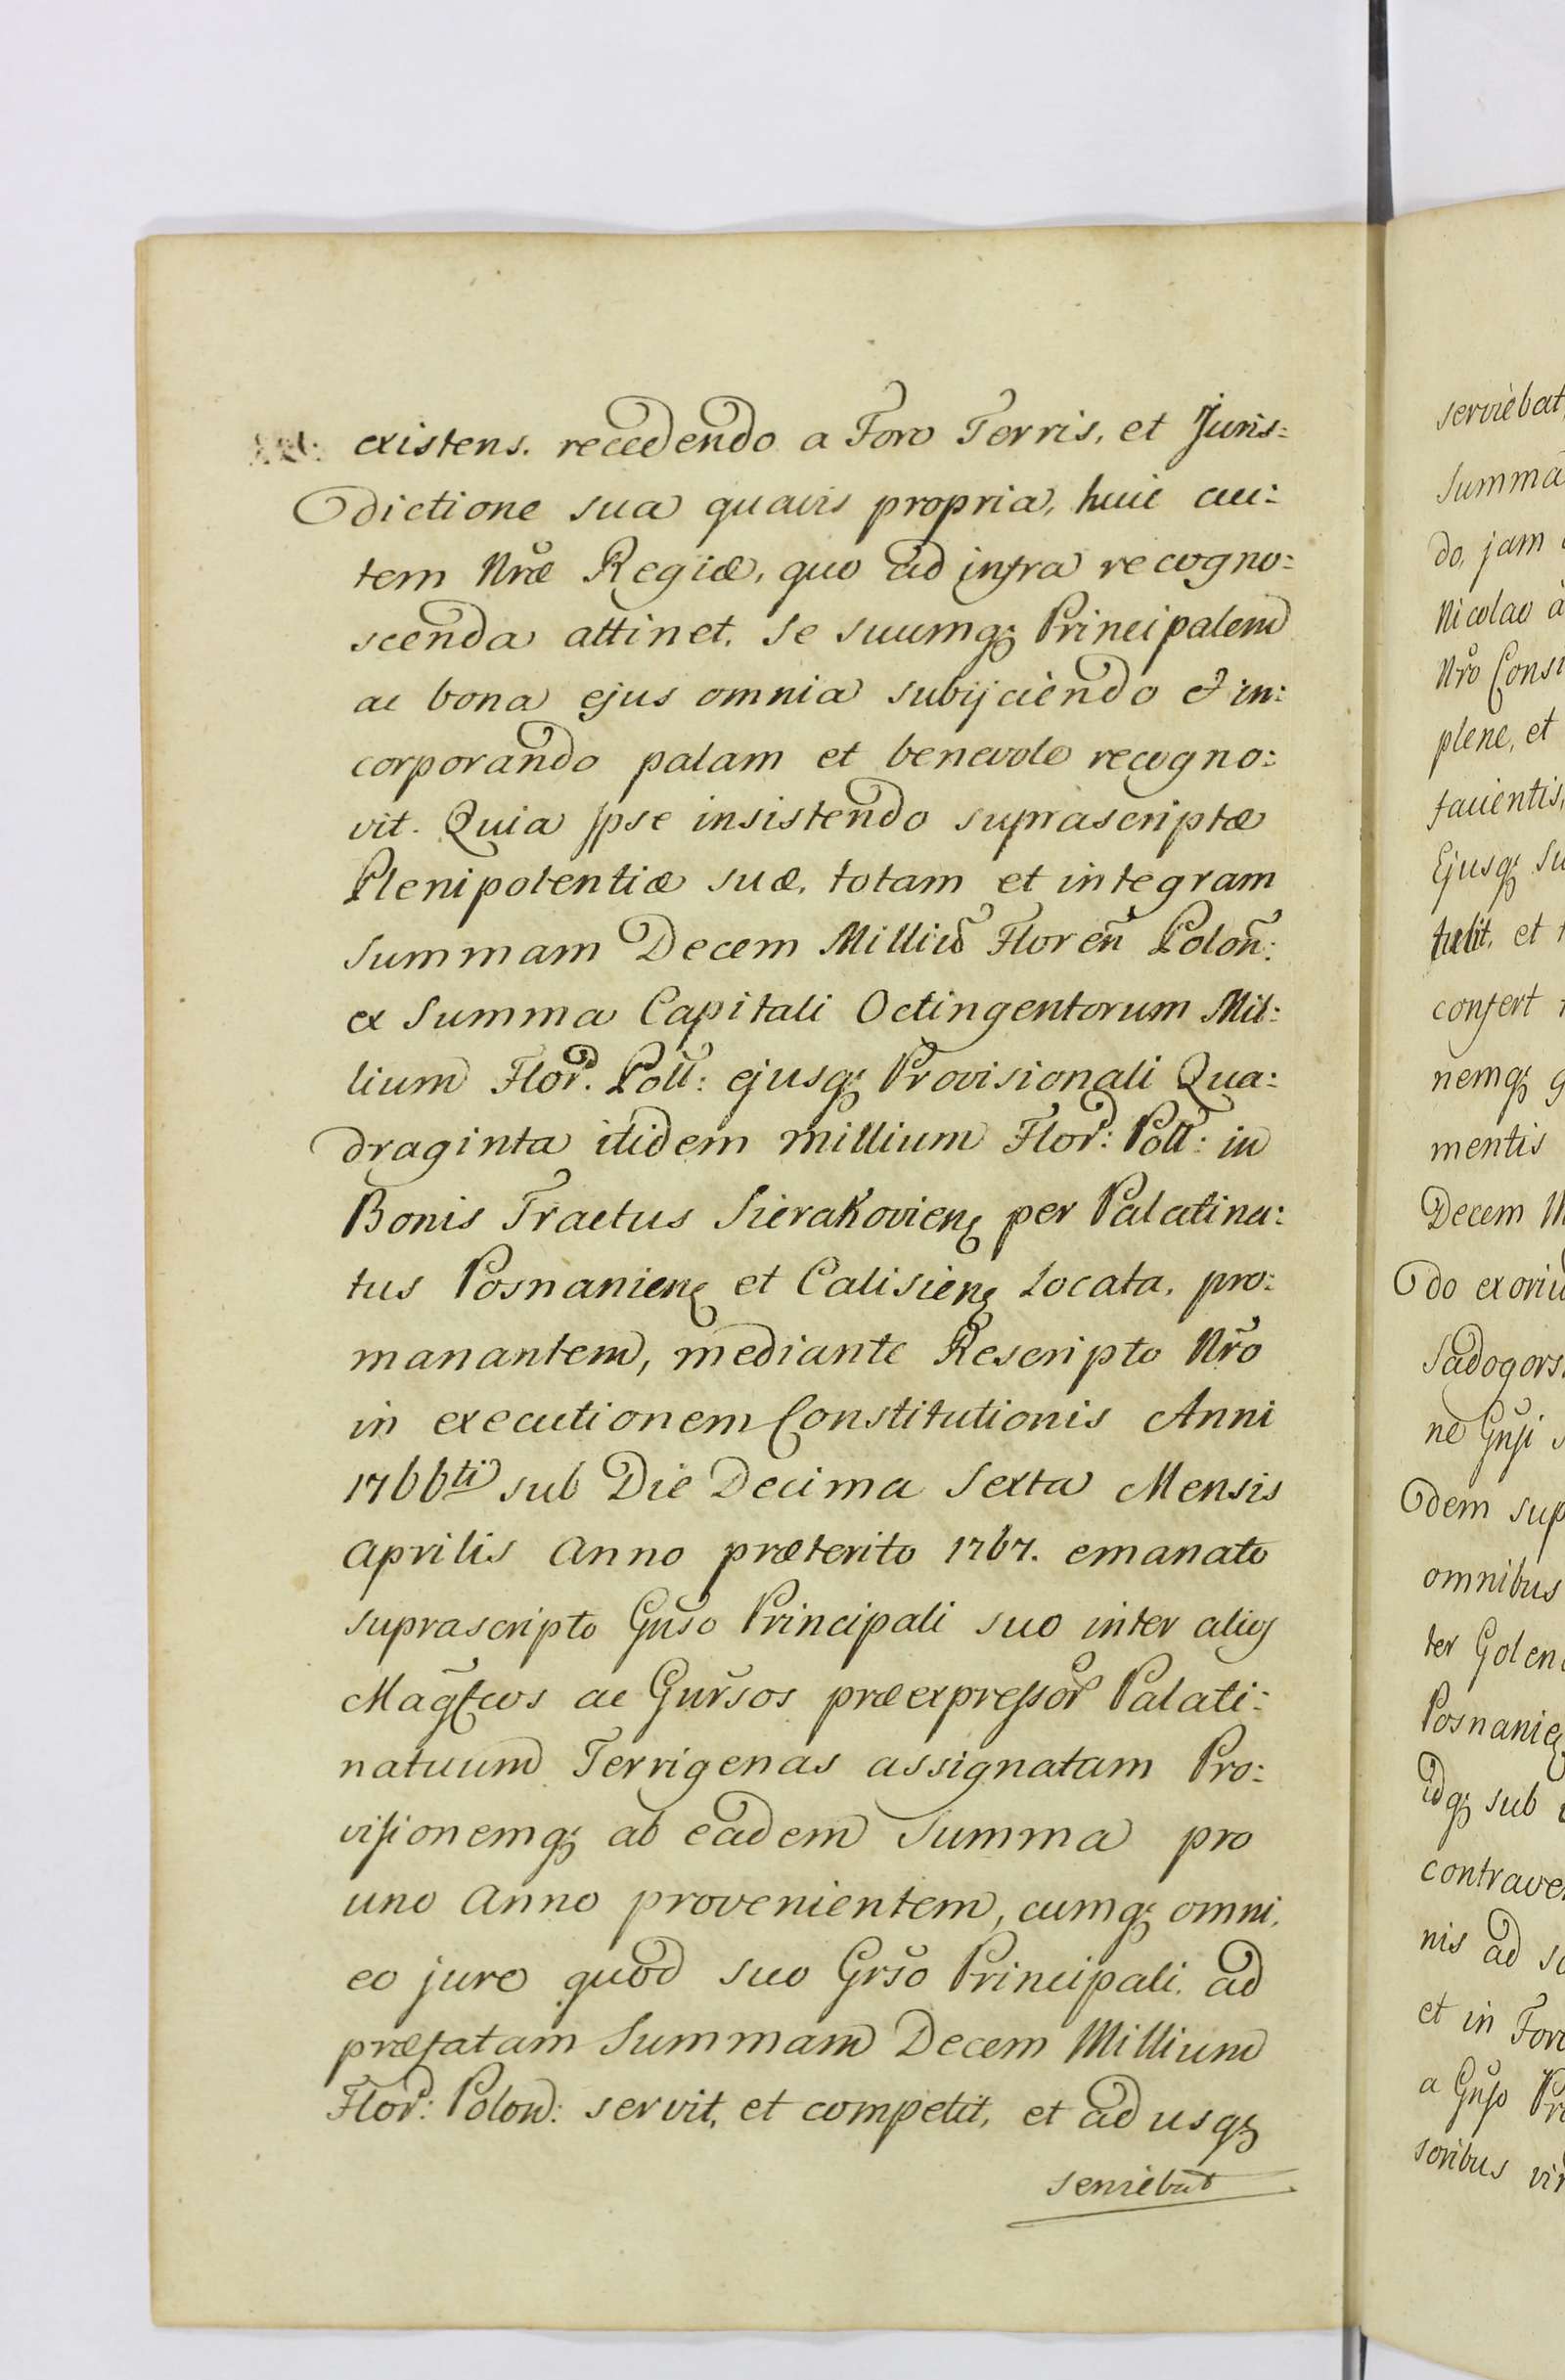 existens. recedendo a Foro Terris, et Juris:
dictione sua quavis propria, huic au:
tem Nrae Regiæ, quo ad infra recogno:
scenda attinet. se suumq; Principalem
ac bona ejus omnia subijciendo et in:
corporando palam et benevole recogno:
vit. Quia Ipse insistendo suprascriptæ
Plenipotentiæ suæ, totam et integram
Summam Decem Milliũ Floreñ Poloñ:
ex Summa Capitali Octingentorum Mil:
lium Flor. Poll: ejusq; Provisionali Qua:
draginta itidem millium Flor: Poll: in
Bonis Tractus Sierakovien: per Palatina:
tus Posnanien: et Calisien: Locata. pro:
manantem, mediante Rescripto Nr̃o
in executionem Constitutionis Anni
1766ti sub Die Decima Sexta Mensis
Aprilis Anno præterito 1767. emanato
suprascripto Gñso Principali suo inter alios
Magcos ac Gnrsos præexpressor Palati:
natuum Terrigenas assignatam Pro:
visionemq; ab eadem Summa pro
uno Anno provenientem, cumq; omni
eo jure quod suo Grso Principali ad
præfatam Summam Decem Millium
Flor: Polon: servit, et competit, et ad usq;
serviebat
serviebat
Summa
do, jam
Nicolao
Nr̃o
plene, et
facientis,
Ejusq;
tulit, et
confert
nemq;
mentis
Decem
do
Sadogors
ne Gnsi
dem
omnibus
ter
Posnanien
idq; sub
nis ad
et in Foro
a Gnso